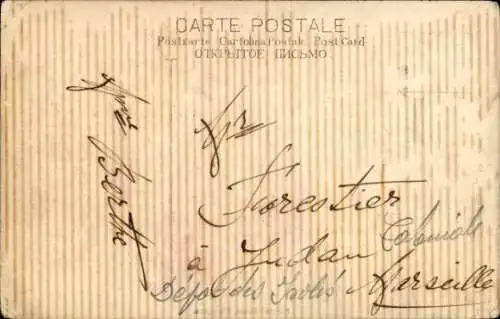 CARTE POSTALE
Postkarte Cartolina Postale Post Card
ОТКРЫТОЕ ПИСЬМО
Mr
Forestier
à Judan Coloniale
Dépôt des Isolés Marseille
Berthe